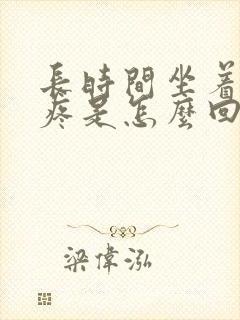 長時間坐着
疼是怎麼回
梁偉泓